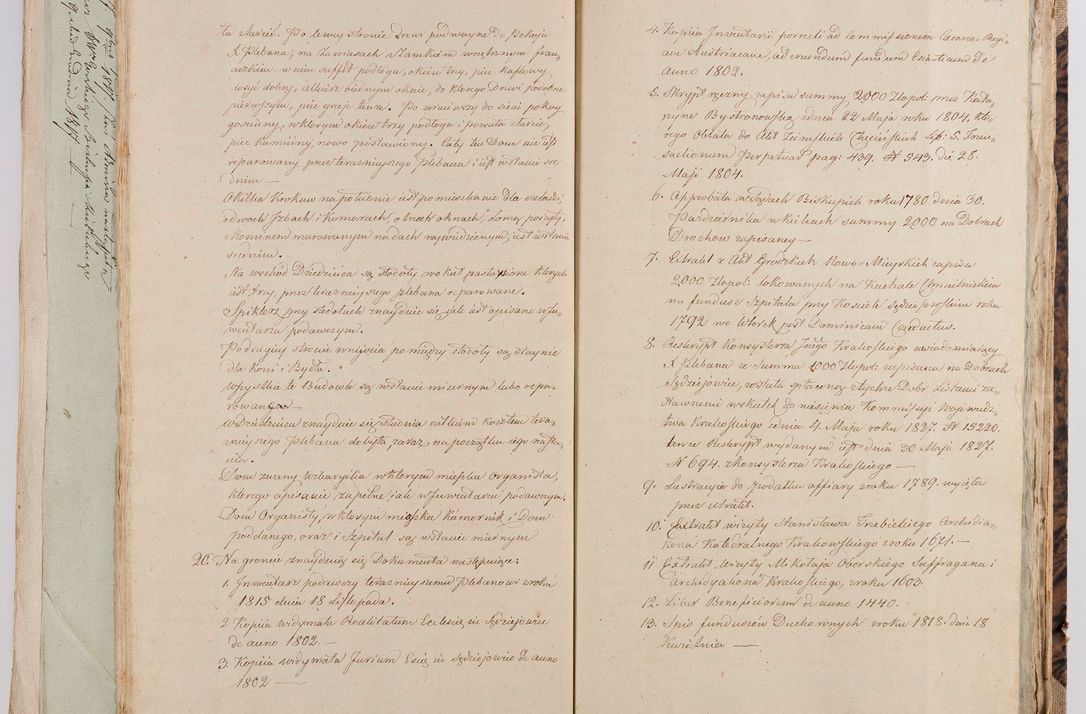 ta starść. Po lewey stronie Drzwi podwoyne do Pokoju
X Plebana, na zawiasach z Zamkiem wnętrznym fran
cuzkim w nim suffit podłoga, okien trzy, piec kaflowy,
twoj dobry, alkierz o iednym oknie, do ktorego Drzwi podobne
pierwszym, piec grzeje tenże. Po wniściu do sieni pokoy
goscinny, w ktorym okien trzy podłoga i powała starść,
piec kaminny, nowo postawiony. Cały ten Dom iest
reparowany przez teraznieyszego Plebana i iest w stanie sre
dnim —
na południe iest pomieszkanie dla czeladzi
o dwoch Izbach i Komorach, o trzech oknach, słomą poszyty,
z Kominem murowanym na dach najwiedzionym, iest w stanie
srednim.
Na wschód Dziedzińca są stodoły w okuł postawione ktorych
iest trzy, przez teraznieyszego plebana reparowane.
Spiklerz przy stodołach znayduie się iak iest opisane w Jn
wentarzu podawczym.
Po drugiey stronie wniyscia pomiędzy stodoły są staynie
dla koni i Bydła.
Wszystkie te Budowle są w stanie miernym lubo repa
rowane —
W Dziedzincu znayduie się studnia całkiem kosztem tera
znieyszego Plebana dobyta, zaraz na początku iego nastą
nia.
Dom zwany Wikaryika w ktorym mieszka Organista,
ktorego opisanie zupełne iak w Inwentarzu podawczym.
Dom Organisty, w ktorym mieszka Komornik i Dom
poddanego, oraz i Szpital są w stanie miernym
20. Na groncie znayduią się Dokumenta następuiące:
1. Inwentarz podawczy teraznieyszemu Plebanowi z roku
1815 dnia 18 Listopada.
2 Kopia widymata Realitatum Ecclesiae in Sędziejowice
de anno 1802 —
3. Kopiia widymata Jurium Ecclae in Sędziejowice de anno
1802 —
4. Kopiia Inventarii porrecti ad Commissionem Cesareo-Regi
am Austriacam, ad eruendum fundum Ecclesiasticum de
anno 1802.
5. Skrypt ręczny zapisu summy 2000 Złopol: przez Kata
rzyne Bystronowską dnia 22 Maja roku 1804, kto
rego Oblata do Akt Ziemskich Chęcińskich Lib: 5. Tran
sactionum Perpetuar pag: 439. N 543. die 28.
Maji 1804.
6. Approbata w Sądach Biskupich roku 1780 dnia 30.
Pazdziernika w Kielcach summy 2000 na Dobrach
Drochow zapisaney —
7. Extrakt z Akt Grodzkich Nowo-Mieyskich zapisu
2000 Złopol: lokowanych na Kahale Chmielnickiem
na fundusz Szpitala przy Kosciele Sędziejowskiem roku
1792 we Wtorek post Dominicam Conductus.
8. Reskrypt Konsystorza Jnego Krakoskiego uwiadomiaiący
X Plebana ze summa 1000 Złopol: zapisana na Dobrach
Sędziejowice, została spłaconą z tychże Dobr Listami za
stawnemi w skutek do niesienia Kommissyi Wojewódz
twa Krakoskiego z dnia 4. Maja roku 1827. N 15220.
tenze Reskrypt wydanym iest dnia 30 Maja 1827.
N 694. z Konsystorza Krakoskiego —
9. Lustracyia do podatku offiary z roku 1789. wyięta
przez extrakt.
10. Extrakt wizyty Stanisława Trzebickiego Archidia,
kona Katedralnego Krakowskiego z roku 1671. —
11 Extrakt, wizyty Mikołaja Oborskiego Suffragana i
Archidyakona Krakoskiego, z roku 1603
12. Liber Beneficiorum de anno 1440.
13. Spis funduszów Duchownych z roku 1818. dnia 18
Kwietnia —